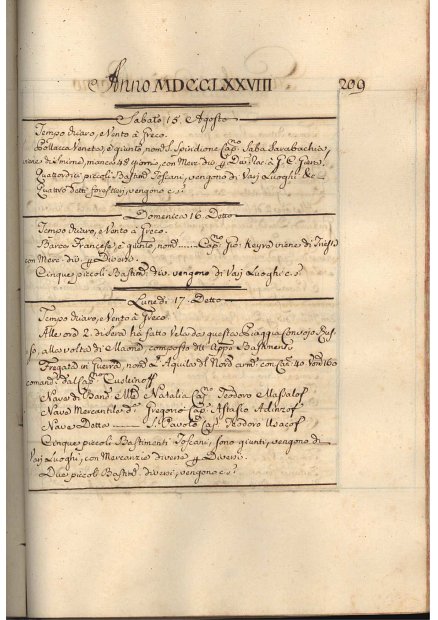 Anno MDCCLXXVIII 209
Sabato 15 Agosto
Tempo chiaro, e Vento à Greco.
Pollacca Veneta, è giunto nom.e S. Spiridione Cap.o Saba Sarabachia
viene di Smirne, manca 48 giorni, con Merc. div. p
Quattordici piccoli Bastim.ti Toscani, vengono di Varj Luoghi &c
Quattro detti forestieri, vengono c.s.
Domenica 16 Detto
Tempo chiaro, e Vento à Greco.
Barca Francese, è giunto, nom. Cap. Gio: Reyra viene di
con Merc. div. p Diversi.
Cinque piccoli Bastim. div. vengono di Varj Luoghi c.s.
Lunedi 17. Detto
Tempo chiaro, e Vento à Greco.
Alle ore 2. di sera hà fatto Vela da questa Spiaggia Convojo Rus-
so, alla volta di composto
Fregata in Guerra, nom. L'Aquila del Nord arm. con Ca. 40 Uom. 160
comand. dal Cap.
Nave di Band. Natalia Cap.no Teodoro
Nave Mercantile S. Gregorio Cap. Astasio
Nave Detta S. Pavolo Cap. Teodoro
Cinque piccoli Bastimenti Toscani, sono giunti, vengono di
Varj Luoghi, con Mercanzie diverse p Diversi.
Due piccoli Bastim. diversi, vengono c.s.